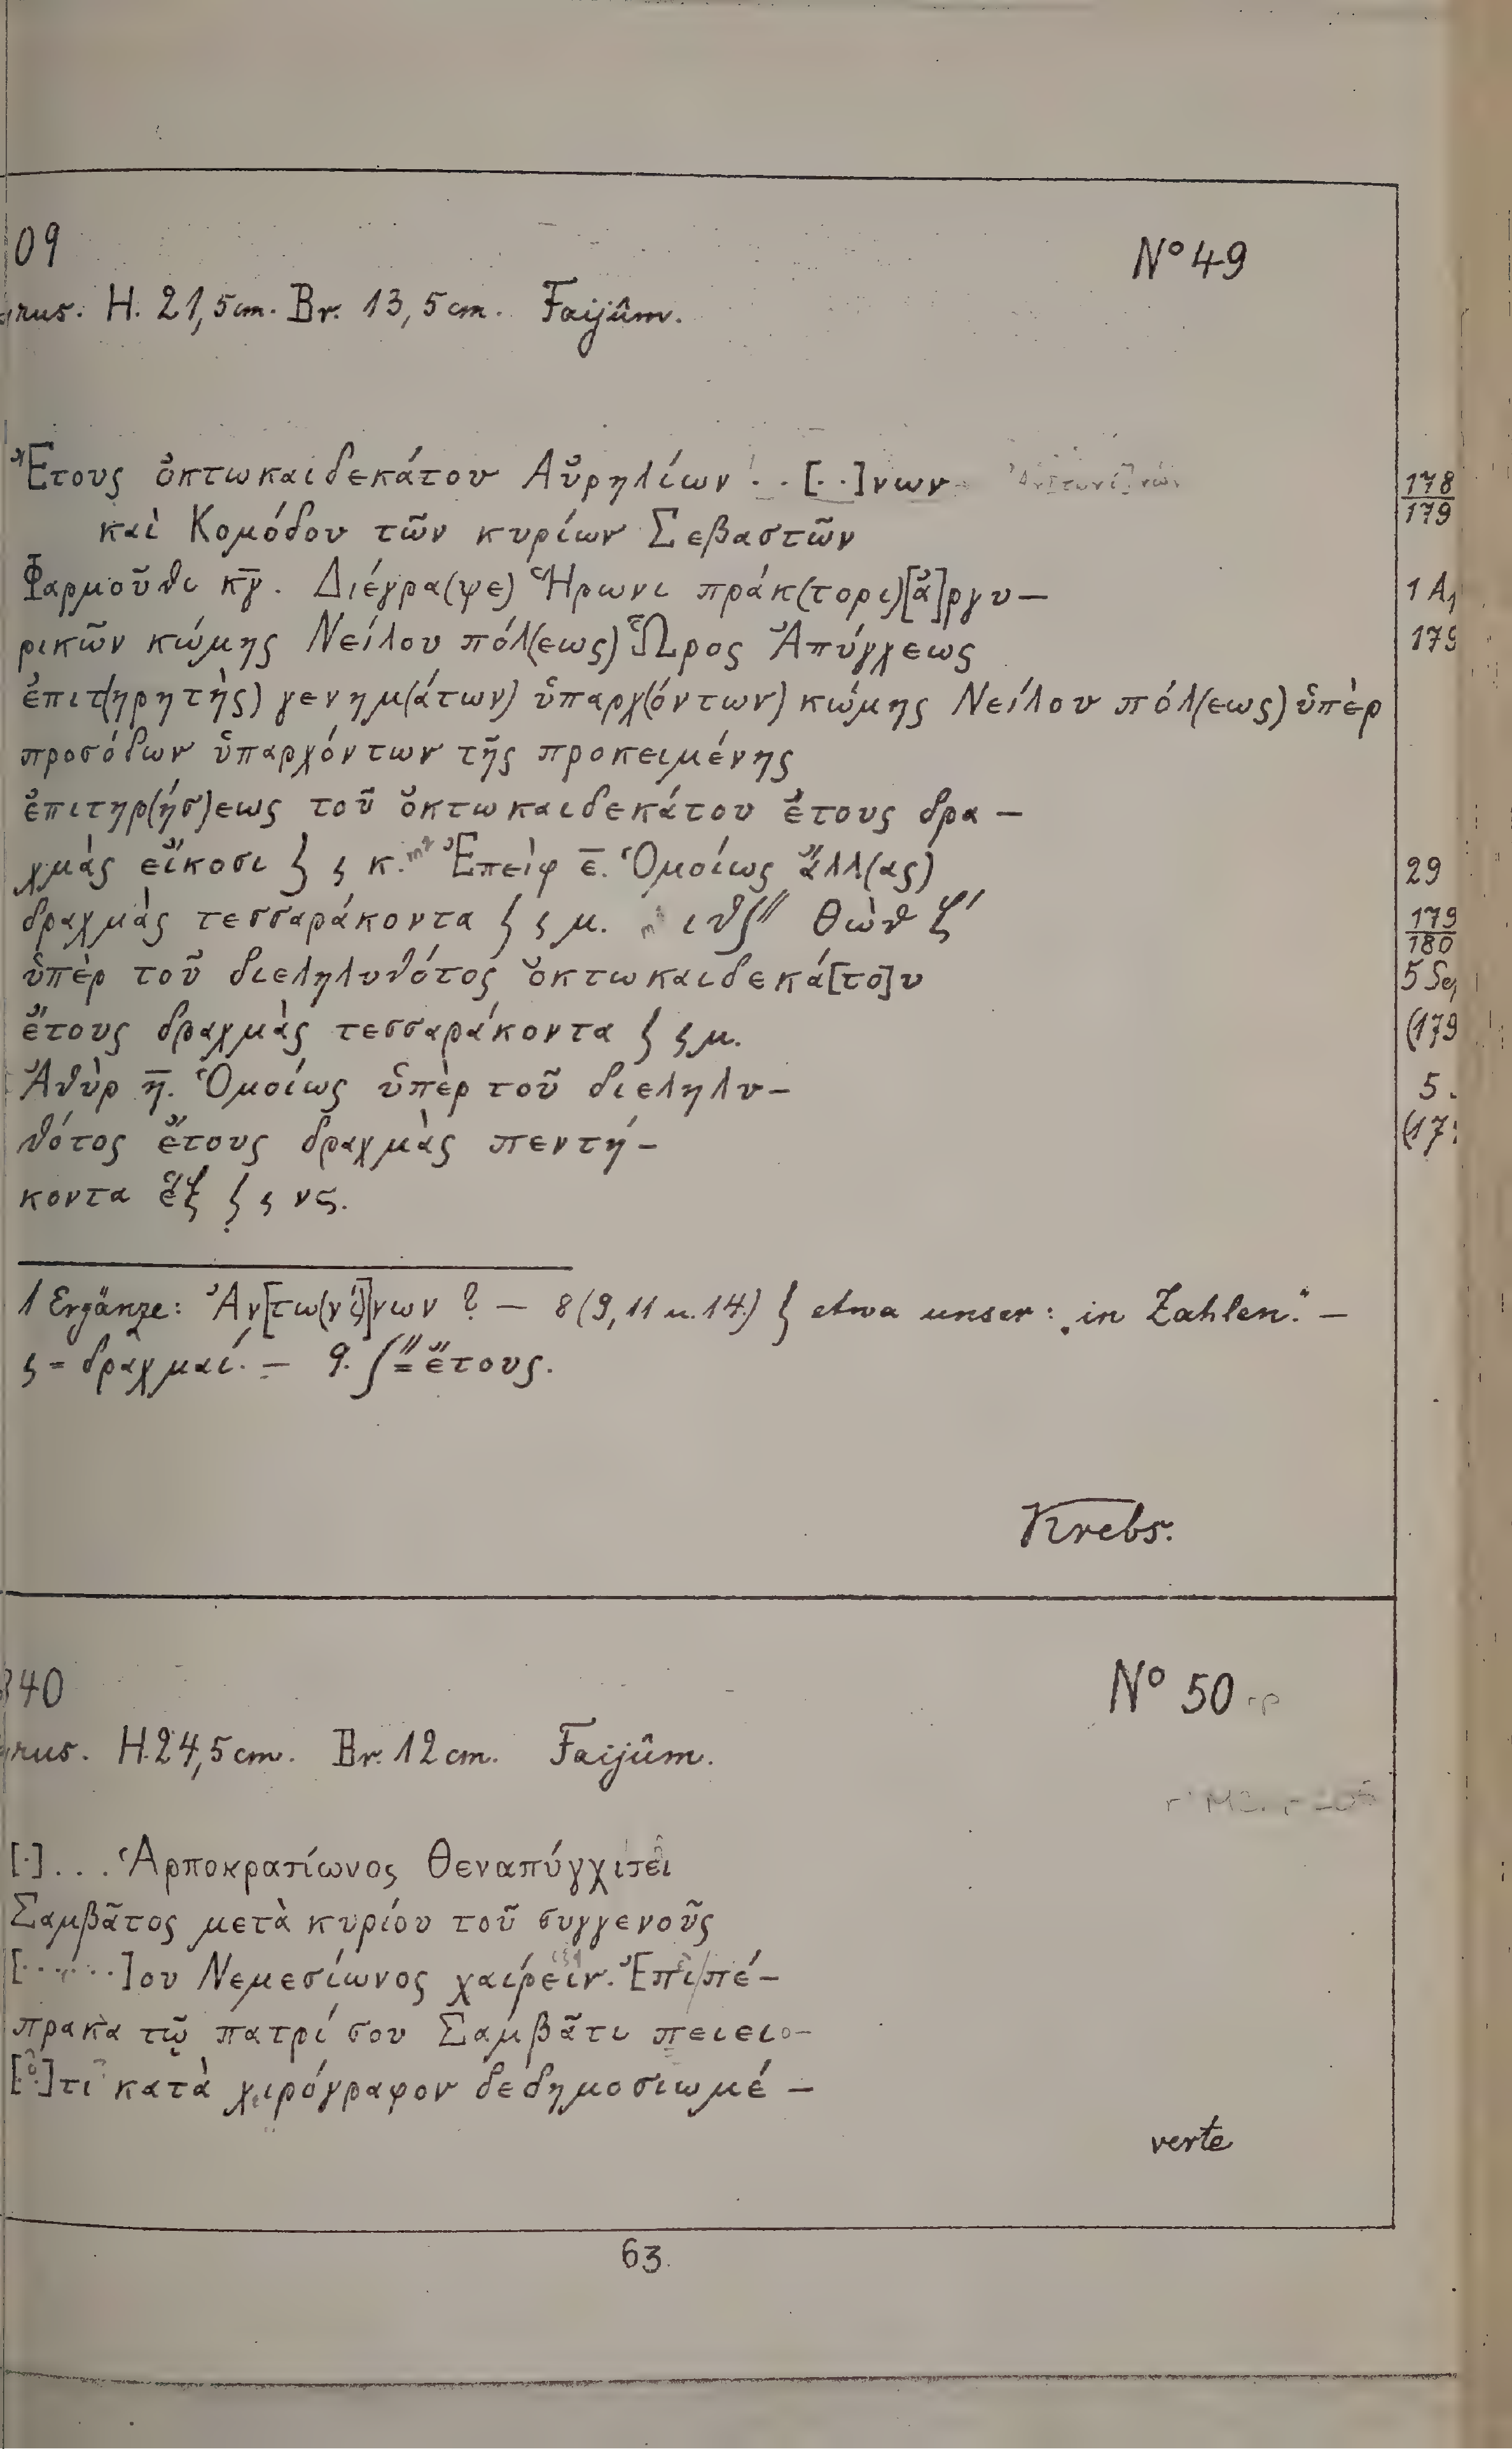 09
N° 49
rus. H. 21,5 cm. Br. 13,5 cm. Faijûm.
Ἔτους ὀκτωκαιδεκάτου Αὐρηλίων . . [. .]νων
178
179
καὶ Κομόδου τῶν κυρίων Σεβαστῶν
Φαρμοῦθι κ̅γ̅. Διέγρα(ψε) Ἥρωνι πράκ(τορι)[ἀ]ργυ—
1 A
ρικῶν κώμης Νείλου πόλ(εως) Ὧρος Ἀπύγχεως
179
ἐπιτ(ηρητὴς) γενημ(άτων) ὑπαρχ(όντων) κώμης Νείλου πόλ(εως) ὑπὲρ
προσόδων ὑπαρχόντων τῆς προκειμένης
ἐπιτηρ(ήσ)εως τοῦ ὀκτωκαιδεκάτου ἔτους δρα—
χμὰς εἴκοσι ⟆ ϛ κ. Ἐπεὶφ ε̅. Ὁμοίως ἄλλ(ας)
29
δραχμὰς τεσσαράκοντα ⟆ ϛ μ. ιθ ʃ″ Θὼθ ζ′
179
180
ὑπὲρ τοῦ διεληλυθότος ὀκτωκαιδεκά[το]υ
5 Se
ἔτους δραχμὰς τεσσαράκοντα ⟆ ϛ μ.
(179
Ἀθὺρ η̅. Ὁμοίως ὑπὲρ τοῦ διεληλυ—
5
θότος ἔτους δραχμὰς πεντή—
(17
κοντα ἕξ ⟆ ϛ νϛ.
1 Ergänze: Ἀν[τω(νί)]νων ? — 8 (9, 11 u. 14.) ⟆ etwa unser: „in Zahlen." —
ϛ = δραχμαί. — 9. ʃ″ = ἔτους.
Krebs.
340
N° 50
rus. H. 24,5 cm. Br. 12 cm. Faijûm.
[.] . . . Ἁρποκρατίωνος Θεναπύγχι τεῖ
Σαμβᾶτος μετὰ κυρίου τοῦ συγγενοῦς
[. . . . . .]ου Νεμεσίωνος χαίρειν. Ἐπιπέ—
πρακα τῷ πατρί σου Σαμβᾶτι πειειο—
[.]τι κατὰ χιρόγραφον δεδημοσιωμέ—
verte
63.